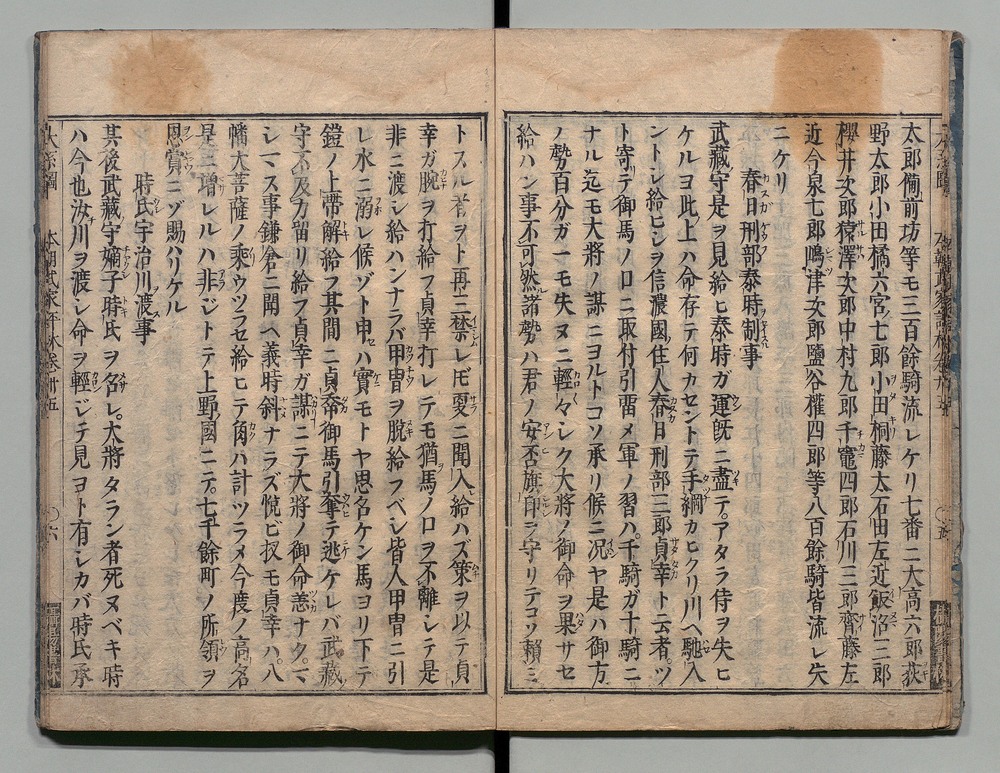 太郎備前坊等モ三百餘騎流レケリ七番ニ大高六郎荻
野太郎小田橘六宮ノ七郎小田桐藤太石田左近飯沼三郎
櫻井次郎猿澤次郎中村九郎千竈四郎石川三郎齊藤左
近今泉七郎嶋津次郎鹽谷權四郎等八百餘騎皆流レ失
ニケリ
春日刑部泰時制事
武藏守是ヲ見給ヒ泰時ガ運既ニ盡テアタラ侍ヲ失ヒ
ケルヨ此上ハ命存テ何カセントテ手綱カヒクリ川ヘ馳入
ントレ給ヒシヲ信濃國ノ住人春日刑部三郎貞幸ト云者ツ
ト寄リテ御馬ノ口ニ取付引留メ軍ノ習ハ千騎ガ十騎ニ
ナル迄モ大將ノ謀ニヨルトコソ承リ候ニ况ヤ是ハ御方
ノ勢百分ガ一モ失ヌニ輕々レク大將ノ御命ヲ果サセ
給ハン事不可然諸勢ハ君ノ安否旗印ヲ守リテコソ賴ミ
トスル者ヲト再三禁レモ更ニ聞入給ハズ策ヲ以テ貞
幸ガ腕ヲ打給フ貞幸打レテモ猶馬ノ口ヲ不離レテ是
非ニ渡レ給ハンナラバ甲冑ヲ脱給フベシ皆人甲冑ニ引
レ水ニ溺レ候ゾト申セハ實モトヤ思名ケン馬ヨリ下テ
鎧ノ上帶解給フ其間ニ貞幸御馬引奪テ逃ケレバ武藏
守不及力留リ給フ貞幸ガ謀ニテ大將ノ御命恙ナク
シマス事鎌倉ニ聞ヘ義時斜ナラズ悦ビ扠モ貞幸ハ八
幡大菩薩ノ乘ウツラセ給ヒテ角ハ計ツラメ今度ノ高名
是ニ增レルハ非ジトテ上野國ニテ七千餘町ノ所領ヲ
恩賞ニゾ賜ハリケル
時氏宇治川渡事
其後武藏守嫡子時氏ヲ名レ大將タラン者死ヌベキ時
ハ今也汝川ヲ渡レ命ヲ輕ジテ見ヨト有シカバ時氏承